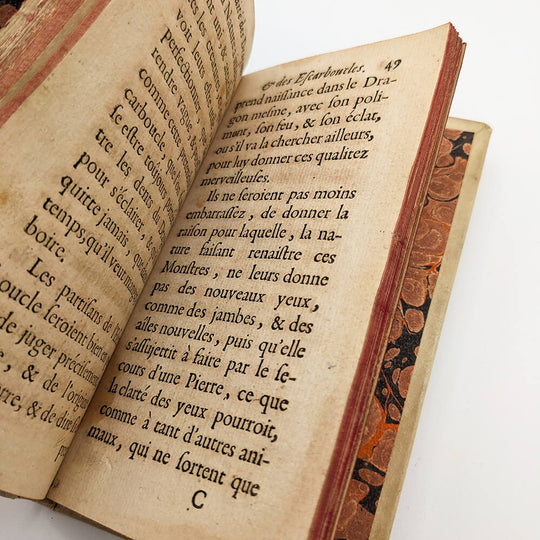 voit leurs
perfectionne
rendre vague, &
comme cette
carboucle, que
se estre toujours
tre les dents du
pour s'éclairer, &
quitte jamais, que
temps, qu'il veut manger
boire.
Les partisans de
boucle seroient bien
de juger précisément
, & de l'origine
rre, & de dire
& des Escarboucles. 49
prend naiſſance dans le Dra-
gon meſme, avec ſon poli-
ment, ſon feu, & ſon éclat,
ou s'il va la chercher ailleurs,
pour luy donner ces qualitez
merveilleuſes.
Ils ne ſeroient pas moins
embarraſſez, de donner la
raiſon pour laquelle, la na-
ture faiſant renaiſtre ces
Monſtres, ne leurs donne
pas des nouveaux yeux,
comme des jambes, & des
aîles nouvelles, puis qu'elle
s'aſſujettit à faire par le ſe-
cours d'une Pierre, ce que
la clarté des yeux pourroit,
comme à tant d'autres ani-
maux, qui ne ſortent que
C